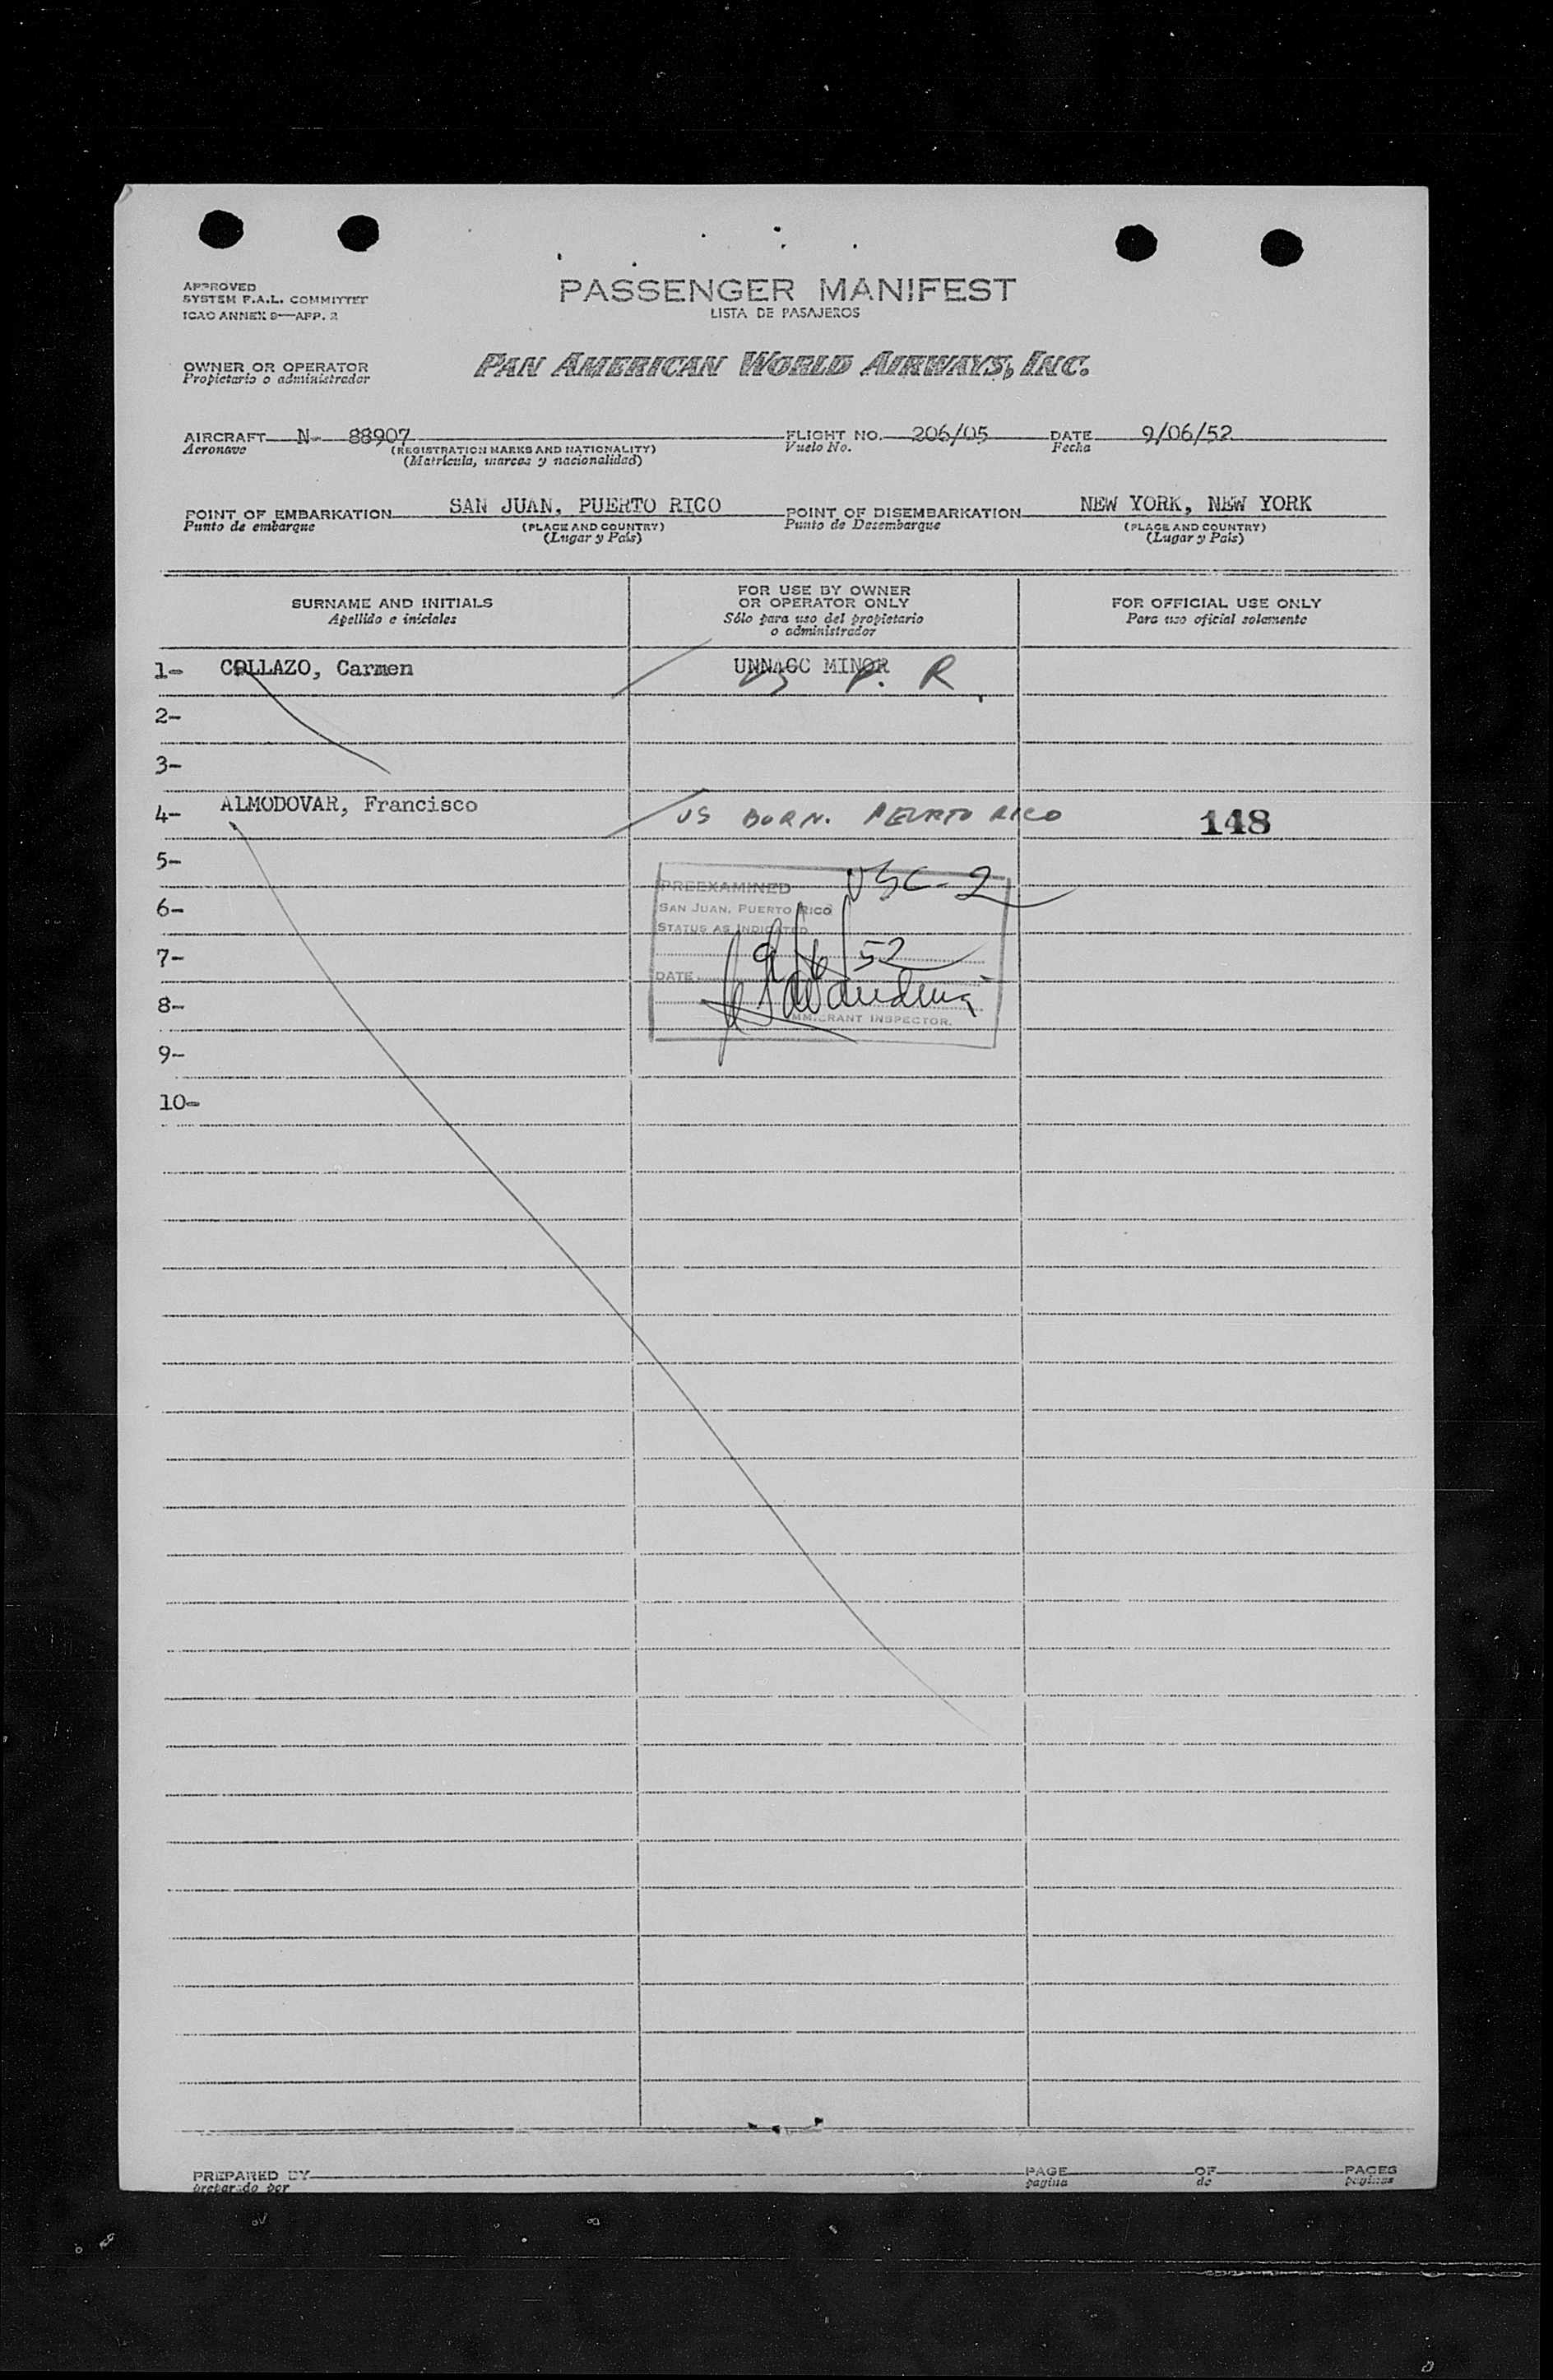 APPROVED
SYSTEM F.A.L. COMMITTEE
ICAO ANNEX 9—APP. 2
PASSENGER MANIFEST
LISTA DE PASAJEROS
OWNER OR OPERATOR
Propietario o administrador
PAN AMERICAN WORLD AIRWAYS, INC.
AIRCRAFT N- 88907 FLIGHT NO. 206/05 DATE 9/06/52
Aeronave (REGISTRATION MARKS AND NATIONALITY) Vuelo No. Fecha
(Matrícula, marcas y nacionalidad)
POINT OF EMBARKATION SAN JUAN, PUERTO RICO POINT OF DISEMBARKATION NEW YORK, NEW YORK
Punto de embarque (PLACE AND COUNTRY) Punto de Desembarque (PLACE AND COUNTRY)
(Lugar y País) (Lugar y País)
SURNAME AND INITIALS
Apellido e iniciales
FOR USE BY OWNER
OR OPERATOR ONLY
Sólo para uso del propietario
o administrador
FOR OFFICIAL USE ONLY
Para uso oficial solamente
1- COLLAZO, Carmen UNNACC MINOR
US P. R.
2-
3-
4- ALMODOVAR, Francisco US BORN. PEURTO RICO 148
5-
6-
7-
8-
9-
10-
PREEXAMINED USC-2
SAN JUAN, PUERTO RICO
STATUS AS INDICATED
DATE 9/6/52
IMMIGRANT INSPECTOR.
PREPARED BY PAGE OF PAGES
preparado por pagina de paginas